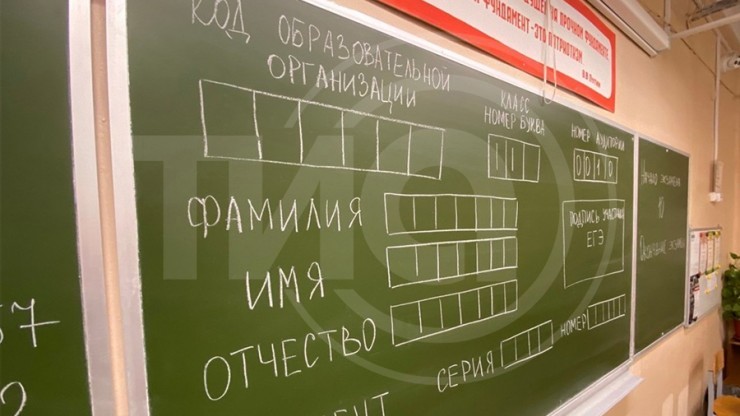 КОД ОБРАЗОВАТЕЛЬНОЙ
ОРГАНИЗАЦИИ
КЛАСС
НОМЕР БУКВА
1 1
НОМЕР АУДИТОРИИ
0 0 1 0
ФАМИЛИЯ
ИМЯ
ОТЧЕСТВО
ПОДПИСЬ УЧАСТНИКА
ЕГЭ
СЕРИЯ
НОМЕР
ПРОЧНОМ ФУНДАМЕНТЕ
ФУНДАМЕНТ - ЭТО ПАТРИОТИЗМ
НАЧАЛО ЭКЗАМЕНА
ОКОНЧАНИЕ ЭКЗАМЕНА
57
2
ТИА